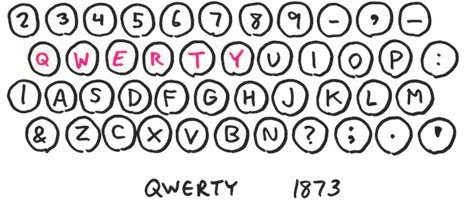 2 3 4 5 6 7 8 9 - , —
Q W E R T Y U I O P :
| A S D F G H J K L M
& Z C X V B N ? ; . '
QWERTY 1873